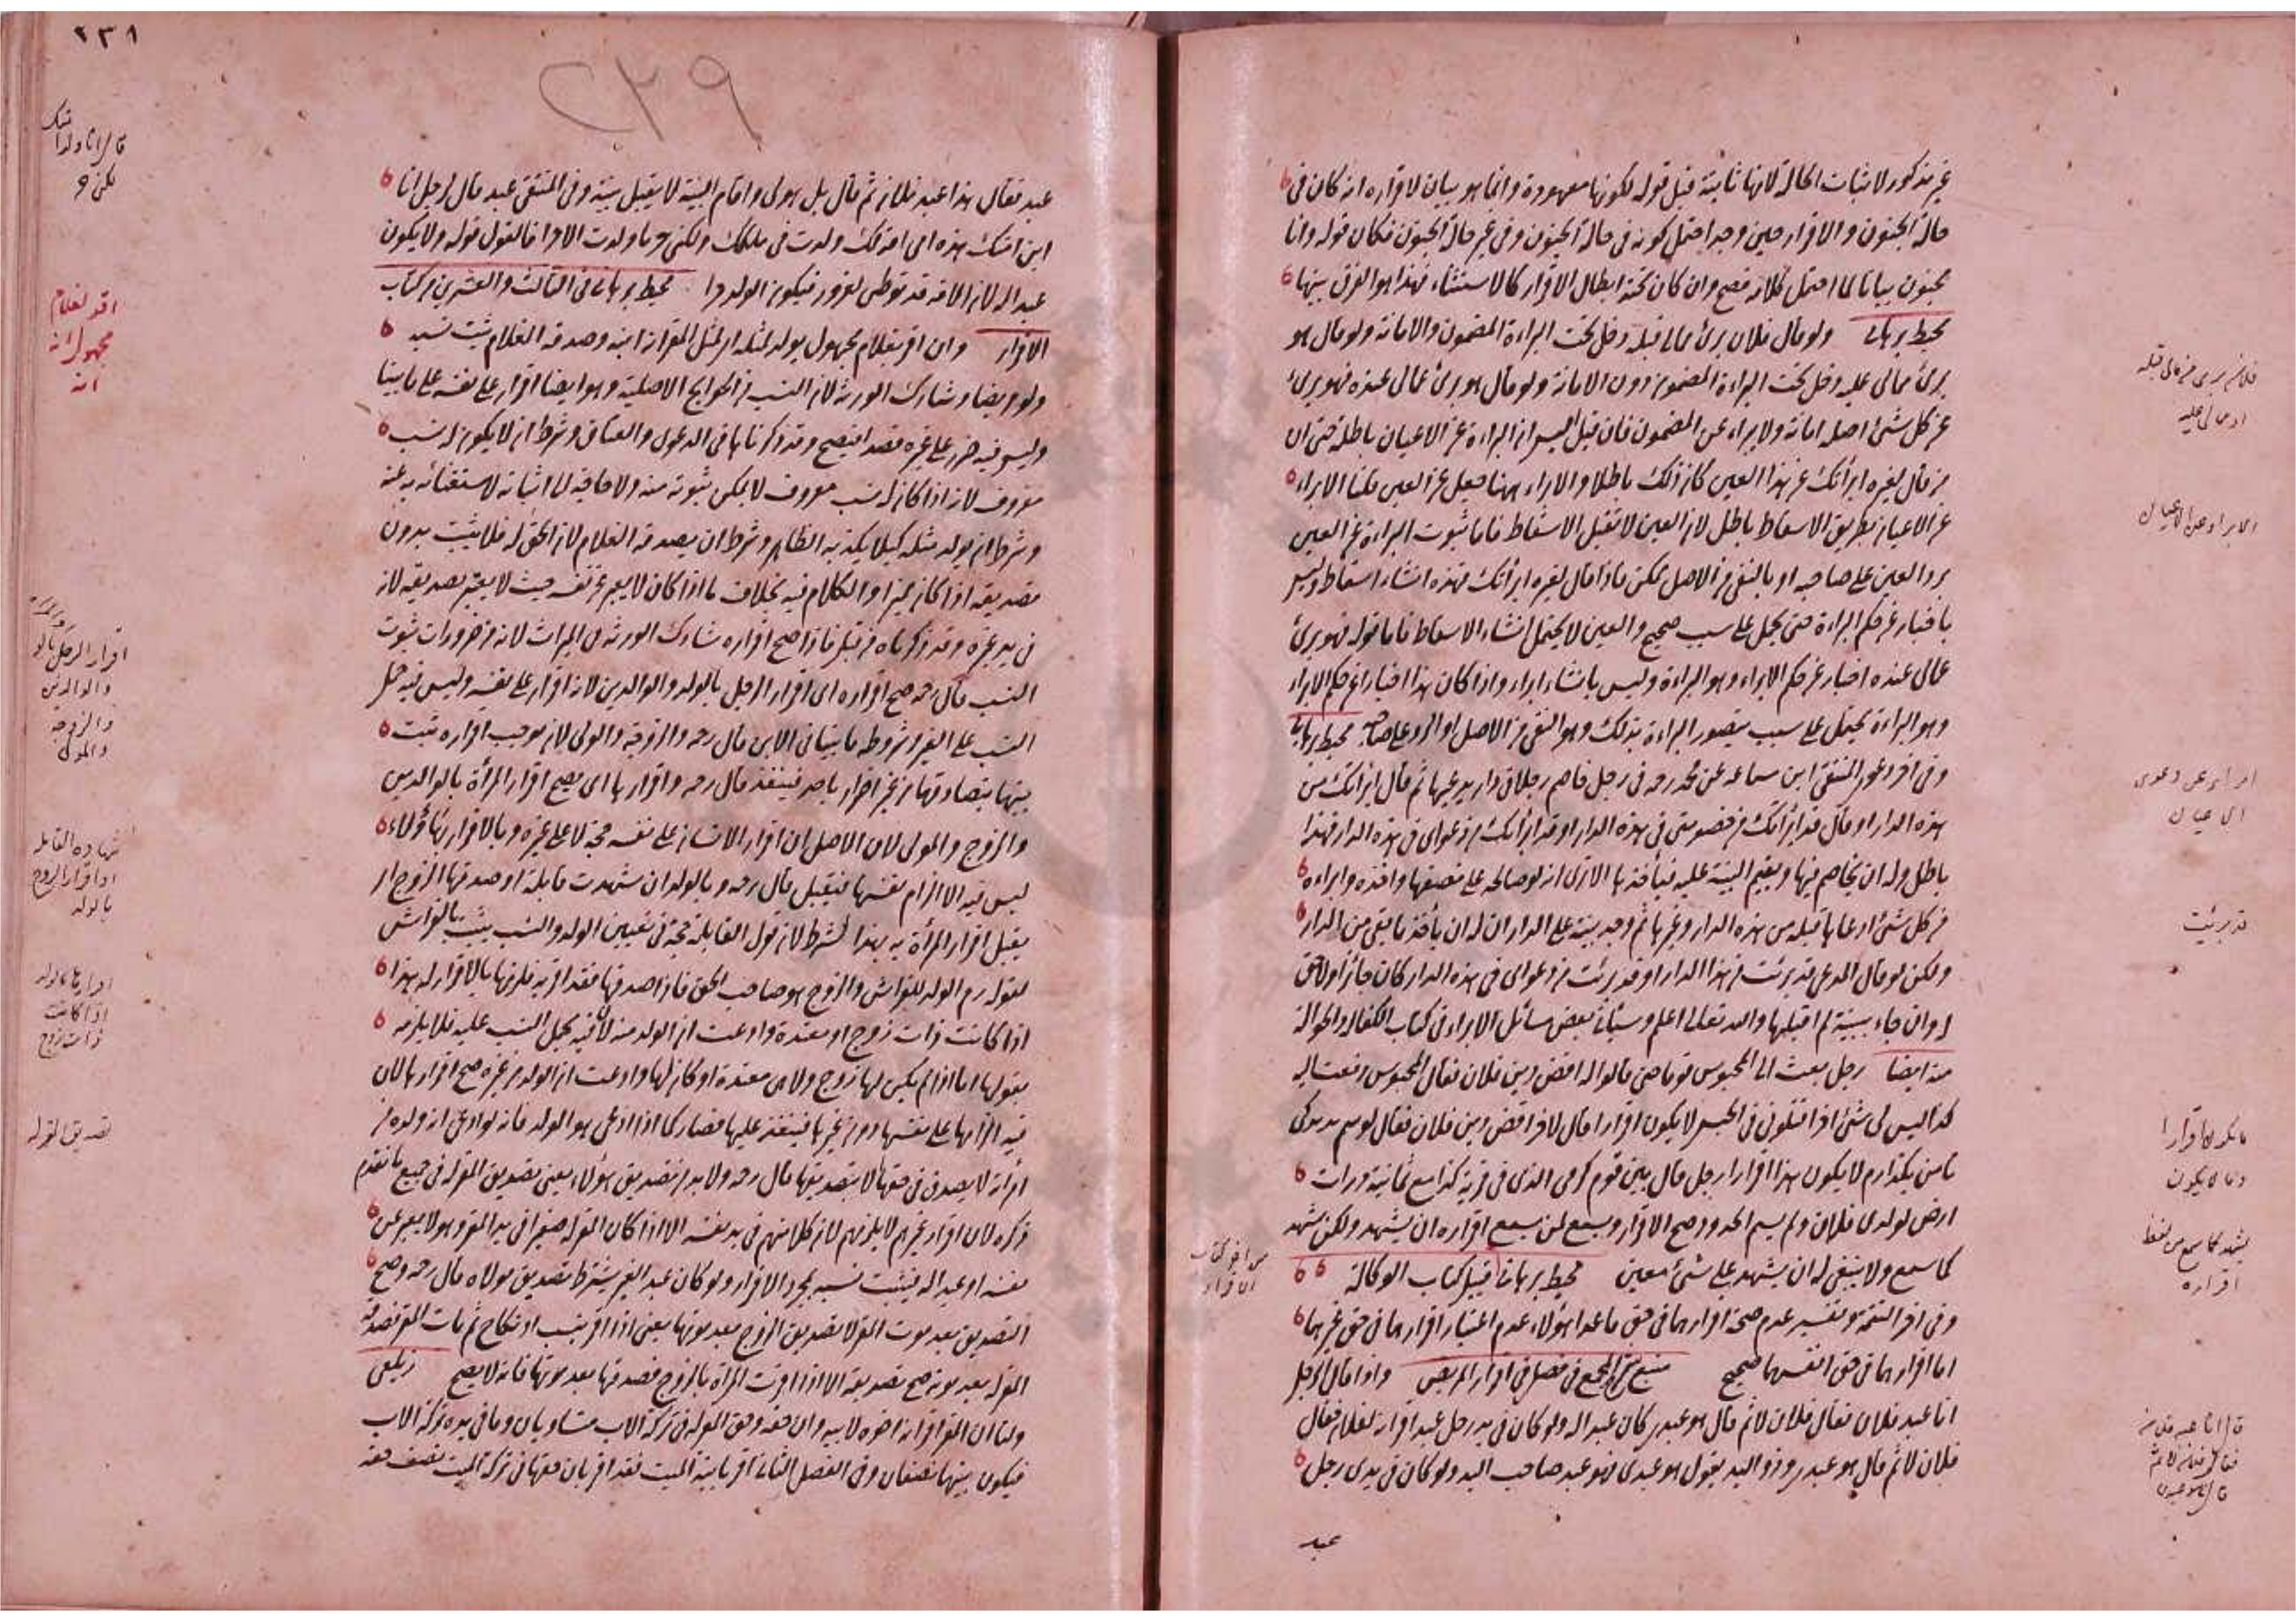 غير مذكور لاثبات الحالة لانها ثابتة قبل قوله لكونها معهودة وانما هو بيان لاقراره انه كان في
حالة الجنون والاقرار حين وجد احتمل كونه في حالة الجنون وفي غير حالة الجنون فكان قوله وانا
مجنون بيانا لما احتمل كلامه فصح وان كان تحته ابطال الاقرار كالاستثناء فهذا هو الفرق بينها
محيط برهاني ولو قال فلان برئ مما لي قبله دخل تحت البراءة المضمون والامانة ولو قال هو
برئ مما لي عليه دخل تحت البراءة المضمون دون الامانة ولو قال هو برئ مما لي عنده فهو برئ
عن كل شئ اصله امانة ولا يبراء عن المضمون فان قيل اليس ان البراءة عن الاعيان باطلة حتى ان
من قال لغيره ابرأتك عن هذا العين كان ذلك باطلا والابراء ههنا حصل عن العين قلنا الابراء
عن الاعيان بطريق الاسقاط باطل لان العين لا تقبل الاسقاط فاما ثبوت البراءة عن العين
برد العين على صاحبه او بالنفي من الاصل ممكن فاذا قال لغيره ابرأتك فهذه انشاء اسقاط وليس
باخبار عن حكم البراءة حتى يحمل على سبب صحيح والعين لا يحتمل انشاء الاسقاط فاما قوله فهو برئ
مما لي عنده اخبار عن حكم الابراء وهو البراءة وليس بانشاء ابراء واذا كان هذا اخبارا عن حكم الابراء
وهو البراءة يحمل على سبب يتصور البراءة بذلك وهو النفي من الاصل او الرد على صاحبه محيط برهاني
وفي اخر دعوى المنتقى ابن سماعه عن محمد رحه في رجل خاصم رجلا في دار يدعيها ثم قال ابرأتك من
هذه الدار او قال قد ابرأتك من خصومتي في هذه الدار او قد ابرأتك من دعواي في هذه الدار فهذا
باطل وله ان يخاصم فيها ويقيم البينة عليه فيأخذها الا ترى انه لو صالحه على نصفها واخذه وابراءه
من كل شئ ادعاها قبله من هذه الدار وغيرها ثم وجد بينة على الدار ان له ان يأخذ ما بقى من الدار
ولكن لو قال المدعي قد برئت من هذا الدار او قد برئت من دعواي في هذه الدار كان جائزا ولا حق
له وان جاء ببينة لم اقبلها والله تعالى اعلم وسيأتي بعض مسائل الابراء في كتاب الكفالة والحوالة
منه ايضا رجل بعث الى المحبوس قوما حتى قالوا له اقض دين فلان فقال المحبوس دفعت اليه
كذا ليس لي شئ اخر اقتلوني في الحبس لا يكون اقرارا قال لاخر اقض دين فلان فقال
لا يكون هذا اقرارا رجل قال بين قوم كرمي الذي في قرية كذا مع ثمانية ورات
ارض لولدي فلان ولم يسم الحدود صح الاقرار ويسع لمن سمع اقراره ان يشهد ولكن يشهد
كما سمع ولا ينبغي له ان يشهد على شئ معين محيط برهاني قبيل كتاب الوكالة
وفي اخر التتمة وتفسير عدم صحة اقرارهما في حق ما عدا هؤلاء عدم اعتبار اقرارهما في حق غيرهما
اما اقرارهما في حق انفسهما صحيح منبع شرح المجمع في فصل في اقرار المريض واذا قال الرجل
انا عبد فلان فقال فلان لا ثم قال هو عبدي كان عبدا له ولو كان في يد رجل عبد اقر انه لفلان فقال
فلان لا ثم قال هو عبدي وذو اليد يقول هو عبدي فهو عبد صاحب اليد ولو كان في يدي رجل
عبد
الابراء عن الاعيان
ابراء عن دعوى
الاعيان
قد برئت
ما يكون اقرارا
وما لا يكون
يشهد كما سمع من لفظ
اقراره
من اخر كتاب
الاقرار
قال انا عبد فلان
فقال فلان لا ثم
قال هو عبدي
٢٣٨
٢٣٩
عبد فقال هذا عبد فلان ثم قال بل هو لي واقام البينة لا يقبل بينة وفي المنتقى عبد قال لرجل انا
ابن امتك هذه امي امة لك ولدت في ملكك ولكني حر ما ولدت الا حرا فالقول قوله ولا يكون
عبدا له لان الامة قد توطئ لغرور فيكون الولد حرا محيط برهاني في الثالث والعشرين من كتاب
الاقرار وان اقر بغلام مجهول يولد لمثله اى لمثل المقر انه ابنه وصدقه الغلام ثبت نسبه
ولو مريضا وشارك الورثة لان النسب من الحوايج الاصلية وهو ايضا اقرار على نفسه على ما بينا
وليس فيه ضرر على غيره قصدا فيصح وقد ذكرناها في الدعوى والعتاق وشرط ان لا يكون له نسب
معروف لانه اذا كان له نسب معروف لا يمكن ثبوته منه ولا حاجة له الى اثباته لاستغنائه به عنه
وشرط ان يولد مثله كيلا يكذبه الظاهر وشرط ان يصدقه الغلام لان الحق له فلا يثبت بدون
تصديقه اذا كان مميزا والكلام فيه بخلاف ما اذا كان لا يعبر عن نفسه حيث لا يعتبر تصديقه لانه
في يد غيره وقد ذكرناه من قبل فاذا صح اقراره شارك الورثة في الميراث لانه من ضرورات ثبوت
النسب قال رحه صح اقراره اى اقرار الرجل بالولد والوالدين لانه اقرار على نفسه وليس فيه حمل
النسب على الغير وشروطه ما بينا في الابن قال رحه والزوجة والمولى لان موجب اقراره ثبت
بينهما بتصادقهما من غير اضرار باحد فينفذ قال رحه واقرارها اى يصح اقرار المرأة بالوالدين
والزوج والمولى لان الاصل ان اقرار الانسان على نفسه حجة لا على غيره وبالاقرار بهؤلاء
ليس فيه الا الزام نفسها فيقبل قال رحه وبالولد ان شهدت قابلة او صدقها الزوج اى
يقبل اقرار المرأة به بهذا الشرط لان قول القابلة حجة في تعيين الولد والنسب يثبت بالفراش
لقوله عم الولد للفراش والزوج هو صاحب الحق فاذا صدقها فقد اقر به فلزمها بالاقرار له بهذا
اذا كانت ذات زوج او معتدة وادعت ان الولد منه لان فيه تحميل النسب عليه فلا يلزمه
بقولها اما اذا لم يكن لها زوج ولا هي معتدة او كان لها وادعت ان الولد من غيره صح اقرارها لان
فيه الزامها على نفسها دون غيرها فينفذ عليها فصار كما اذا ادعى هو الولد فانه لو ادعى انه ولده من
امرأته لا يصدق في حقها الا بتصديقها قال رحه ولا بد من تصديق هؤلاء يعني تصديق المقر له في جميع ما تقدم
ذكره لان اقرار غيرهم لا يلزمهم لان كلا منهم في يد نفسه الا اذا كان المقر له صغيرا في يد المقر وهو لا يعبر عن
نفسه او عبدا له فيثبت نسبه بمجرد الاقرار ولو كان عبد الغير يشترط تصديق مولاه قال رحه وصح
التصديق بعد موت المقر لا تصديق الزوج بعد موتها يعني اذا اقر بنسب او نكاح ثم مات المقر فصدقه
المقر له بعد موته صح تصديقه الا اذا اقرت المرأة بالزوج فصدقها بعد موتها فانه لا يصح زيلعي
ولنا ان المقر اقر انه اخوه لابيه وان حقه وحق المقر له في تركة الاب متساويان وما في يده تركة الاب
فيكون بينهما نصفان وفي الفصل الثاني اقر بابنية الميت فقد اقر بان حقها في تركة الميت نصف حقه
اقر لغلام
مجهول انه
ابنه
اقرار الرجل بالولد
والوالدين
والزوجة
والمولى
شهادة القابلة
او اقرار الزوج
بالولد
اقرارها بالولد
اذا كانت
ذات زوج
تصديق المقر له